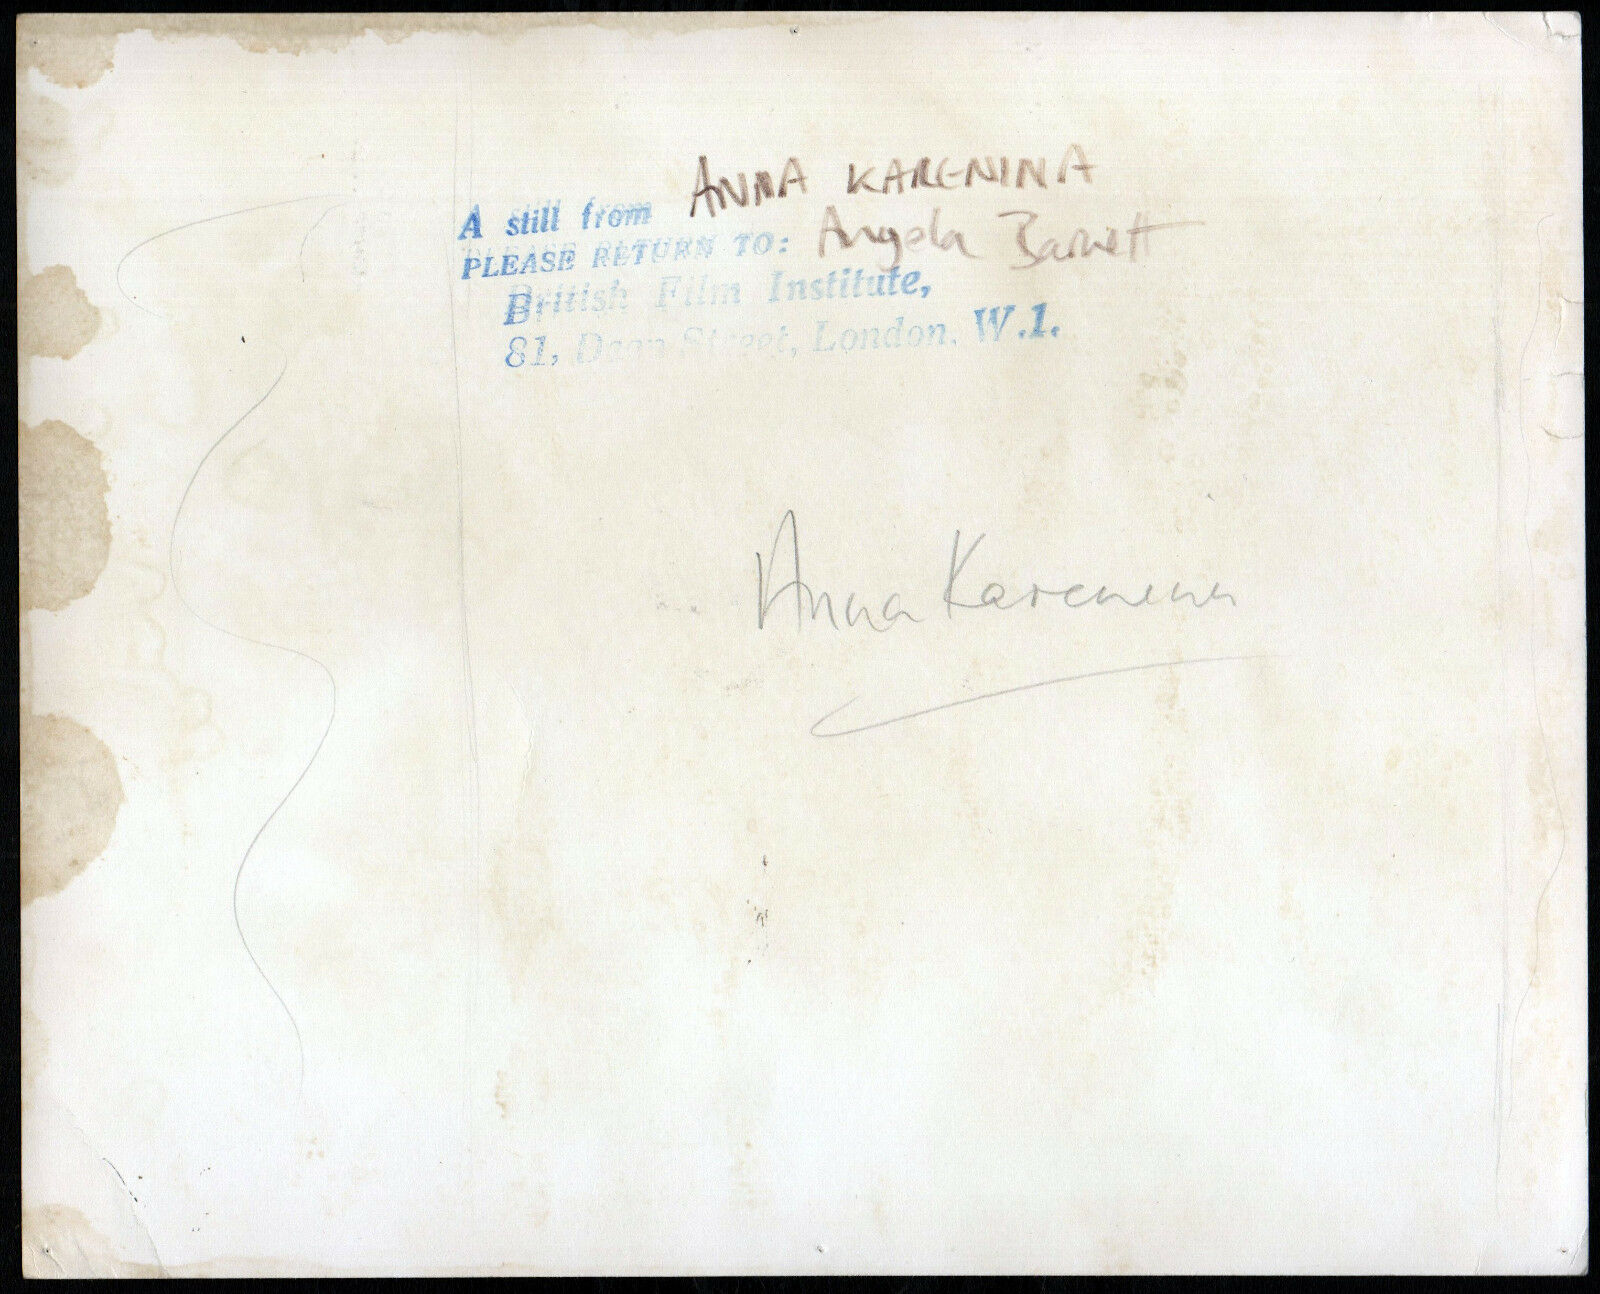 A still from ANNA KARENINA
PLEASE RETURN TO: Angela Barnett
British Film Institute,
81, Dean Street, London, W.1.
Anna Karenina